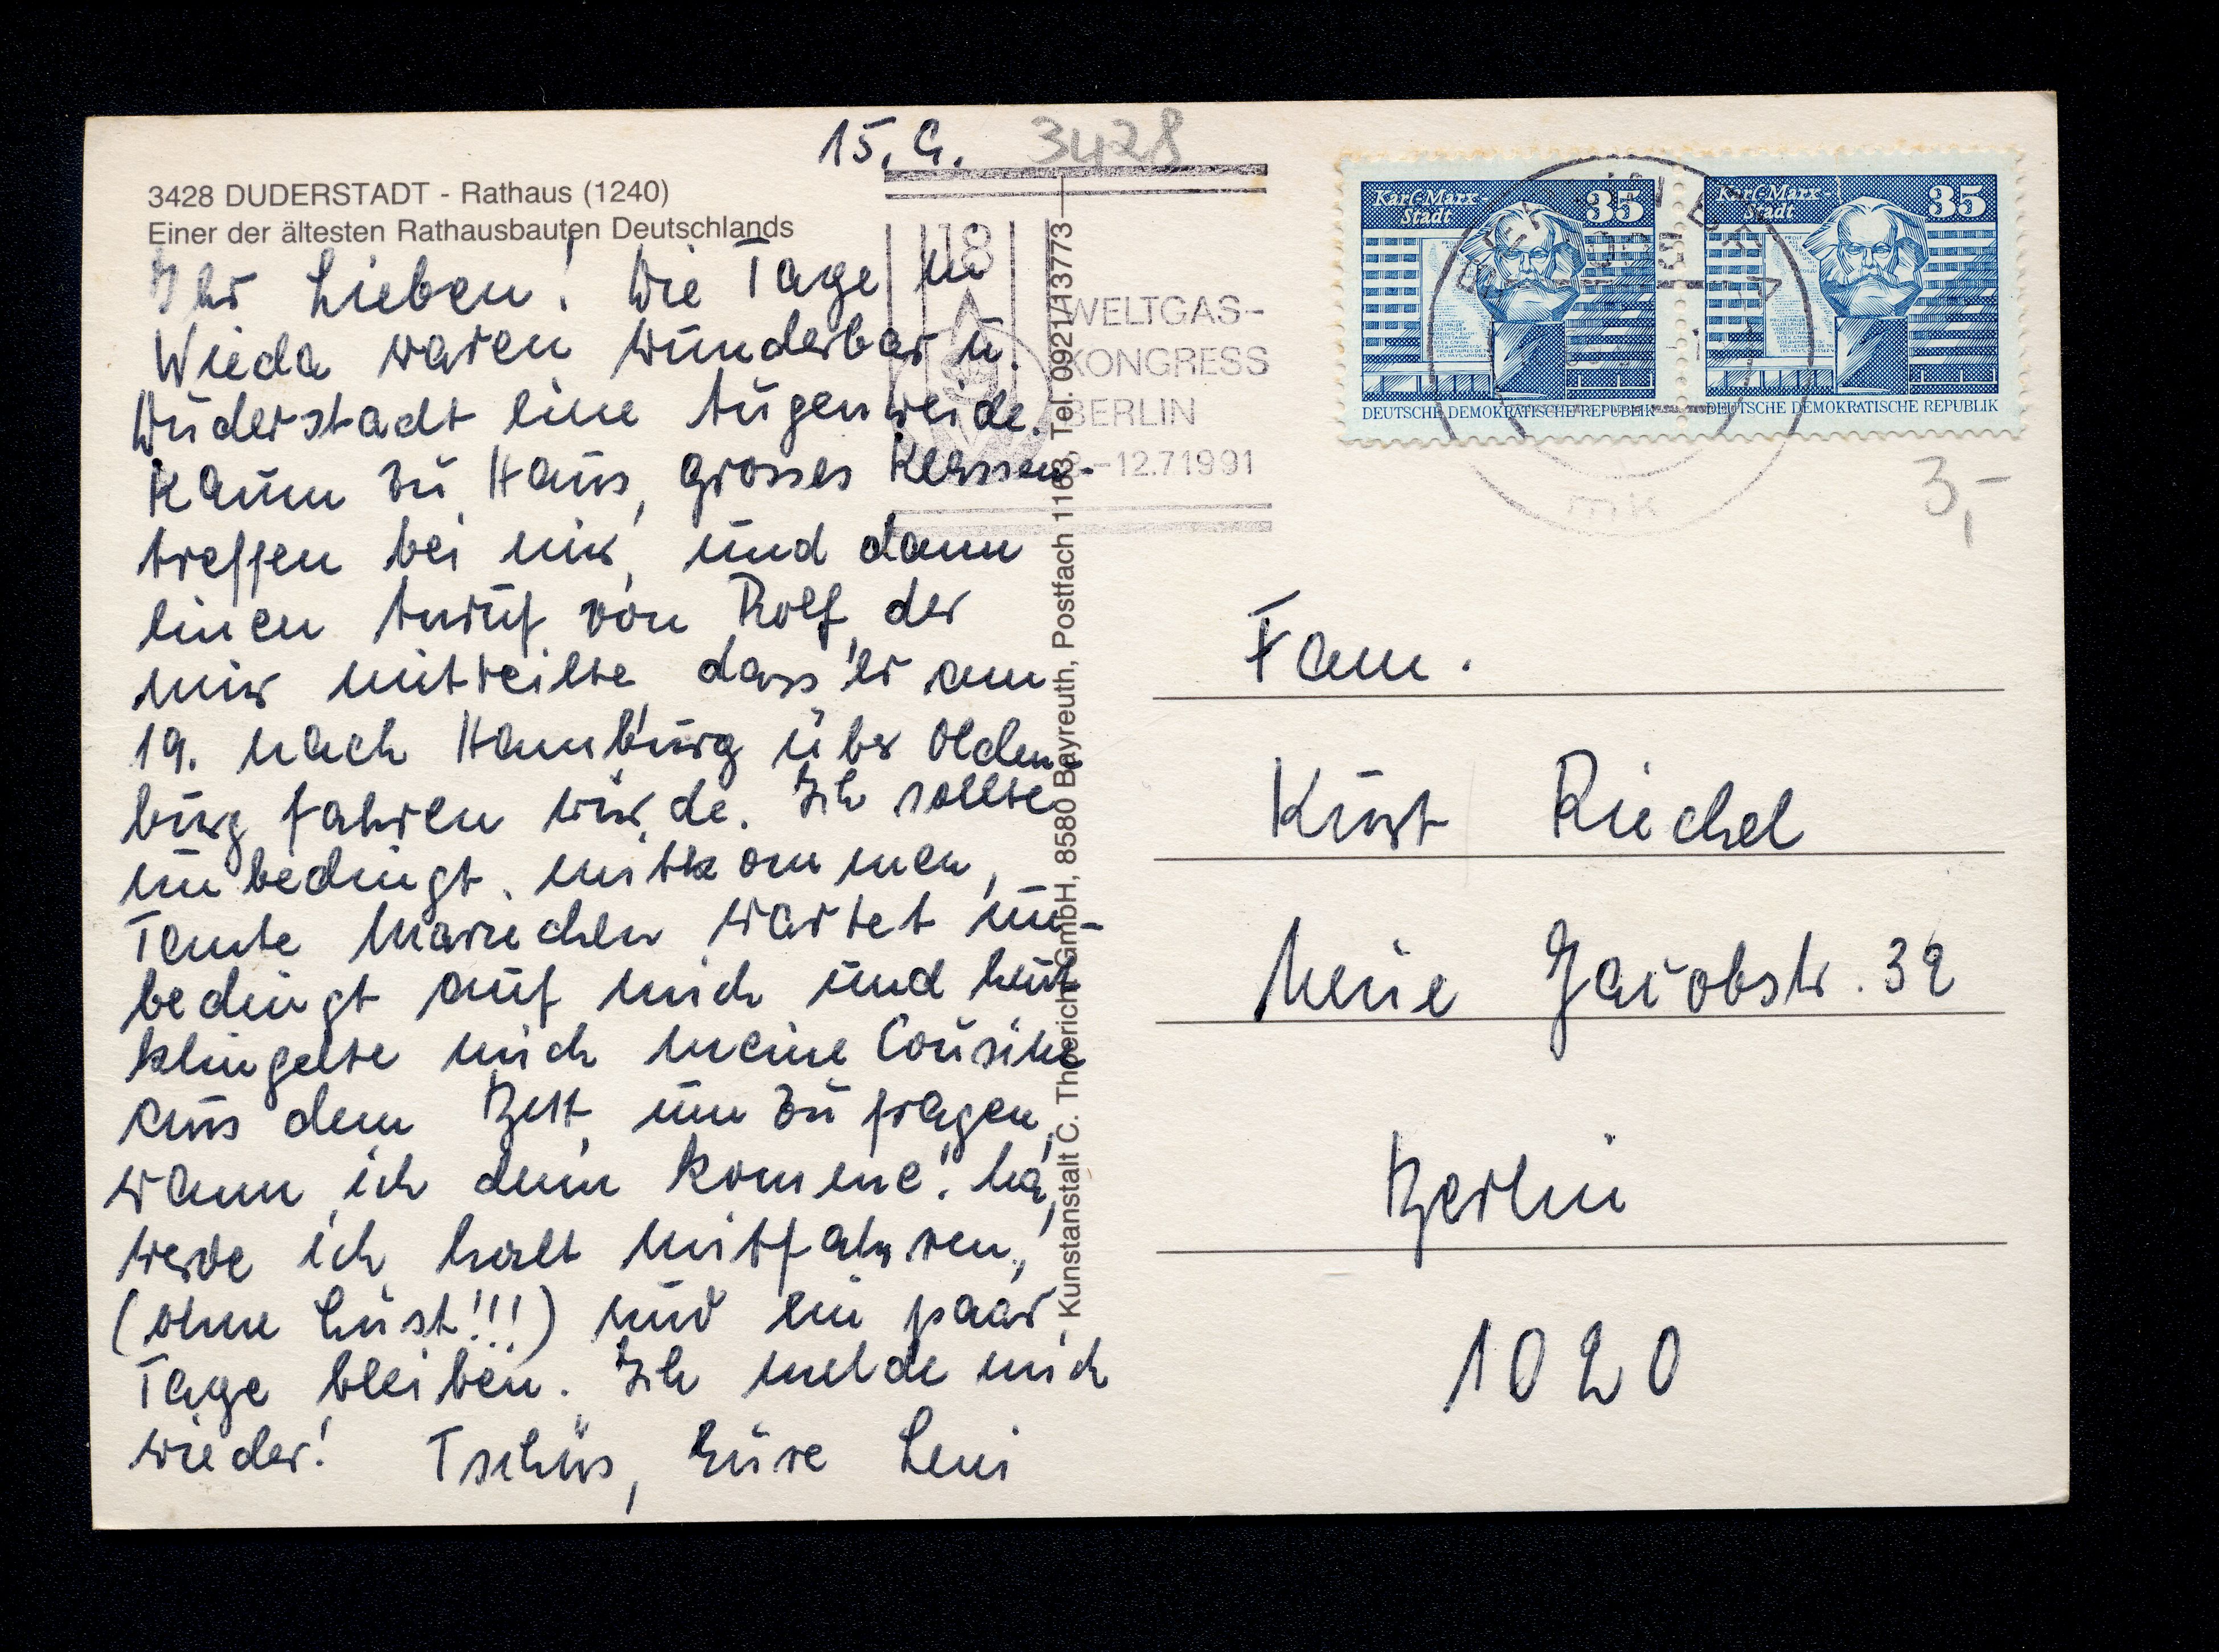 15. 9.
3428
3428 DUDERSTADT - Rathaus (1240)
Einer der ältesten Rathausbauten Deutschlands
Ihr Lieben! Die Tage in
Wieda waren wunderbar u.
Duderstadt eine Augenweide.
Kaum zu Haus, grosses Klassen-
treffen bei mir, und dann
einen Anruf von Rolf, der
mir mitteilte, dass er am
19. nach Hamburg über Olden-
burg fahren würde. Ich sollte
unbedingt mitkommen,
Tante Mariechen wartet un-
bedingt auf mich und heut
klingelte mich meine Cousine
aus dem Bett, um zu fragen,
wann ich denn komme! Na,
werde ich halt mitfahren,
(ohne Lust!!!) und ein paar
Tage bleiben. Ich melde mich
wieder! Tschüs, Eure Leni
Kunstanstalt C. Thoerich GmbH, 8580 Bayreuth, Postfach 1163, Tel. 0921/13773
18
WELTGAS-
KONGRESS
BERLIN
-12.71991
Karl-Marx-
Stadt
35
DEUTSCHE DEMOKRATISCHE REPUBLIK
Karl-Marx-
Stadt
35
DEUTSCHE DEMOKRATISCHE REPUBLIK
mk
3,-
Fam.
Kurt Riechel
Neue Jacobstr. 32
Berlin
1020